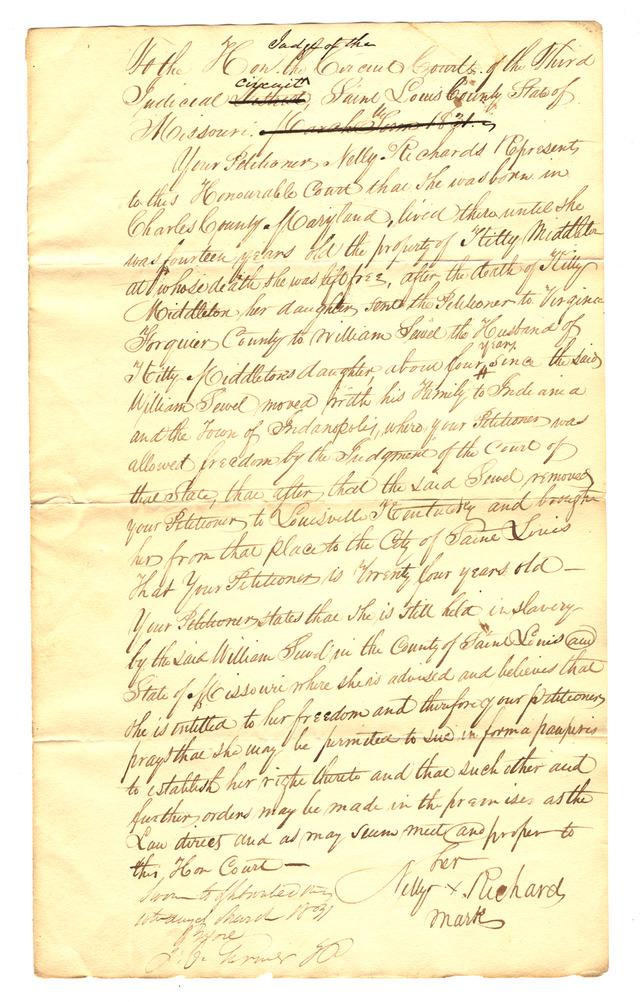 Judge of the
To the Hon. the Circuit Court of the Third
circuit
Judicial District, Saint Louis County State of
Missouri. March Term 1831.
Your Petitioner Nelly Richards Represents
to this Honourable Court that she was born in
Charles County Maryland, lived there until she
was fourteen years old the property of Kitty Middleton
at whose death she was left free, after the death of Kitty
Middleton, her daughter sent the Petitioner to Virginia
Forquier County to William Sewel the Husband of
years
Kitty Middletons daughter, about four since the said
William Sewel moved with his Family to Indiania
and the Town of Indanopolis, where your Petitioner was
allowed freedom by the Judgment of the Court of
that State, that after that the said Sewel removed
your Petitioner to Louisville Kentucky and brought
her from that place to the City of Saint Louis
That Your Petitioner is Twenty four years old —
Your Petitioner states that she is still held in slavery
by the said William Sewel in the County of Saint Louis and
State of Missouri where she is advised and believes that
she is entitled to her freedom and therefore your petitioner
prays that she may be permited to sue in forma pauperis
to establish her right thereto and that such other and
further, orders may be made in the premises as the
Law direct and as may seem meet and proper to
this, Hon Court —
her
Nelly x Richard
mark
Sworn to & subscribed this
March 1831
before